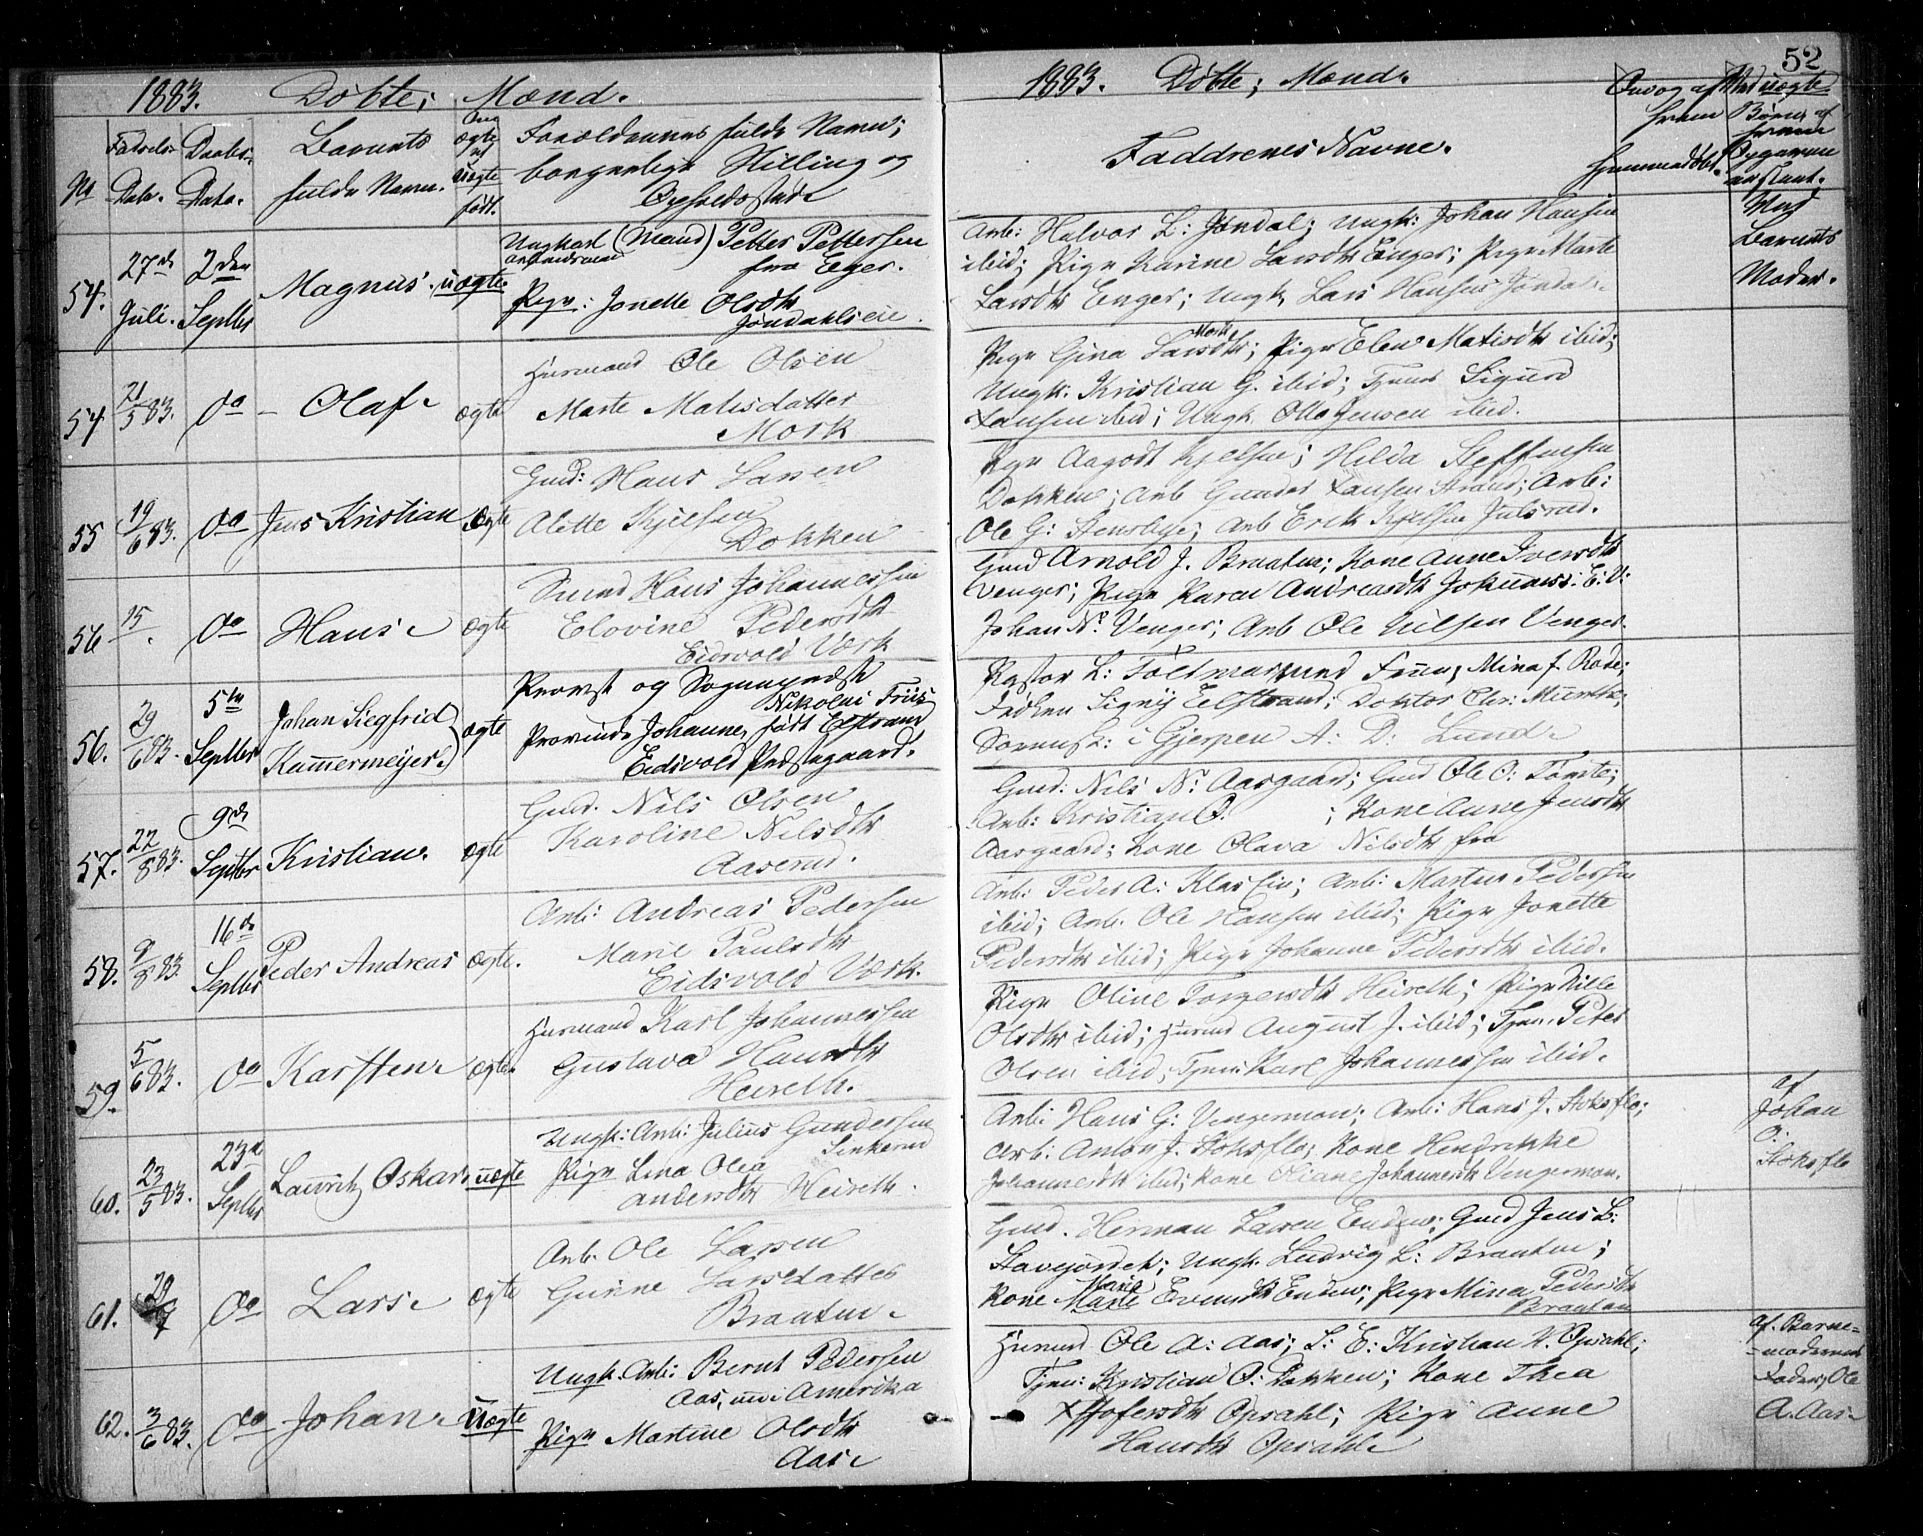 52
1883. Döbte; Mænd.
1883. Döbte; Mænd.
No
Fødsels-
Dato.
Daabs-
Dato.
Barnets
fulde Navn.
Om
ægte
el
uægte
født.
Forældrenes fulde Navne;
borgerlige Stilling og
Opholdssted.
Faddrenes Navne.
Hjemmedöbt.
Ved uægte
Børn, af
hvem
Opgaven
54.
27de
Juli.
2den
Septbr
Magnus.
uægte
Ungkarl (Mand) Petter Pettersen
fra Eger.
Pige: Jonette Olsdtr
Jöndahlseie.
Arb: Halvor L: Jöndal; Ungk: Johan Hansen
ibid; Pige Karine Larsdtr Enger; Pige Marte
Larsdtr Enger; Ungk. Lars Hansen Jöndal.
Ved
Barnets
Moder.
54
21/5 83.
do
Olaf.
ægte
Huusmand Ole Olsen
Marte Matisdatter
Mork
Pige Gina Larsdtr Mork; Pige Elen Matisdtr ibid;
Ungk. Kristian G. ibid; Tjener Sigurd
Hansen ibid; Ungk. Otto Jensen ibid.
55
19/6 83.
do
Jens Kristian
Ægte
Gmd: Hans Larsen
Alette Kjelsen
Dokken
Pige Aagodt Kjelsen; Hilda Steffensen
Dokken; Arb Gunder Hansen Strand; Arb:
Ole G: Stensbye; Arb Erik Kjelsen Julsrud.
56
15/.
do
Hans.
ægte
Smed Hans Johannessen
Elovine Pedersdtr
Eidsvold Værk
Gmd Arnold J. Braaten; Kone Anne Iversdtr
Venger; Pige Karen Andreasdtr E: V:
Johan N. Venger; Arb Ole Nilsen Venger.
56.
29/6 83.
5te
Septbr
Johan Siegfrid
Kammermeijer.
ægte
Provst og Sognepræst
Nikolai Friis
Provinde Johanne, født Elstrand
Eidsvold Præstegaard.
Pastor L: Foltmar med Frue, Mina f. Rode;
Frøken Signy Elstrand; Doktor Chr: Munthe;
Sognepr: i Gjerpen A. D: Lund.
57.
22/8 83.
9de
Septbr
Kristian.
ægte
Gmd. Nils Olsen
Karoline Nilsdtr
Aaserud.
Gmd: Nils N. Aasgaard; Gmd Ole O: Tömte;
Arb: Kristian O. ; Kone Anne Jensdtr
Aasgaard; Kone Olava Nilsdtr fra
58.
9/8 83
16de
Septbr
Peder Andreas
ægte.
Arb: Andreas Pedersen
Marie Paulsdtr
Eidsvold Værk.
Arb: Peder A: Klassen; Arb: Martin Pedersen
ibid; Arb. Ole Hansen ibid; Pige Jonette
Pedersdtr ibid; Pige Johanne Pedersdtr ibid.
59.
5/6 83.
do
Karsten.
Ægte
Huusmand Karl Johannessen
Gustava Hansdtr
Heireth.
Pige Oline Torgersdtr Heireth; Pige Nille
Olsdtr ibid; Huusmd August J. ibid; Tjen. Peter
Olsen ibid, Tjener Karl Johannessen ibid.
60.
23/5 83.
23de
Septbr
Lauritz Oskar.
uægte
Ungk: Arb: Julius Gundersen
Sinkerud
Pige Lina Olea
Andersdtr Heireth.
Arb: Hans G: Vengermoen; Arb: Hans J. Stoksflo;
Arb: Anton J. Stoksflo; Kone Hendrikke
Johannesdtr ibid; Kone Oliane Johannesdtr Vengermoen.
af
Johan
O.
Stoksflo
61.
29/7
do
Lars.
ægte
Arb. Ole Larsen
Gunne Larsdatter
Braaten.
Gmd. Herman Larsen Enden; Gmd Jens L:
Ungk. Ludvig L: Braaten;
Kone Marie Evensdtr Enden; Pige Mina Pedersdtr
Braaten
62.
3/6 83.
do
Johan.
Uægte
Ungk. Arb: Bernt Pedersen
Aas, nu i Amerika
Pige Martine Olsdtr
Aas.
Huusmd Ole A: Aas; S: E: Kristian K. Opsahl;
Tjen: Kristian O: Dokken; Kone Thea
Opsahl; Pige Anne
Hansdtr Opsahl.
af Barne-
-moderens
Fader, Ole
A. Aas.